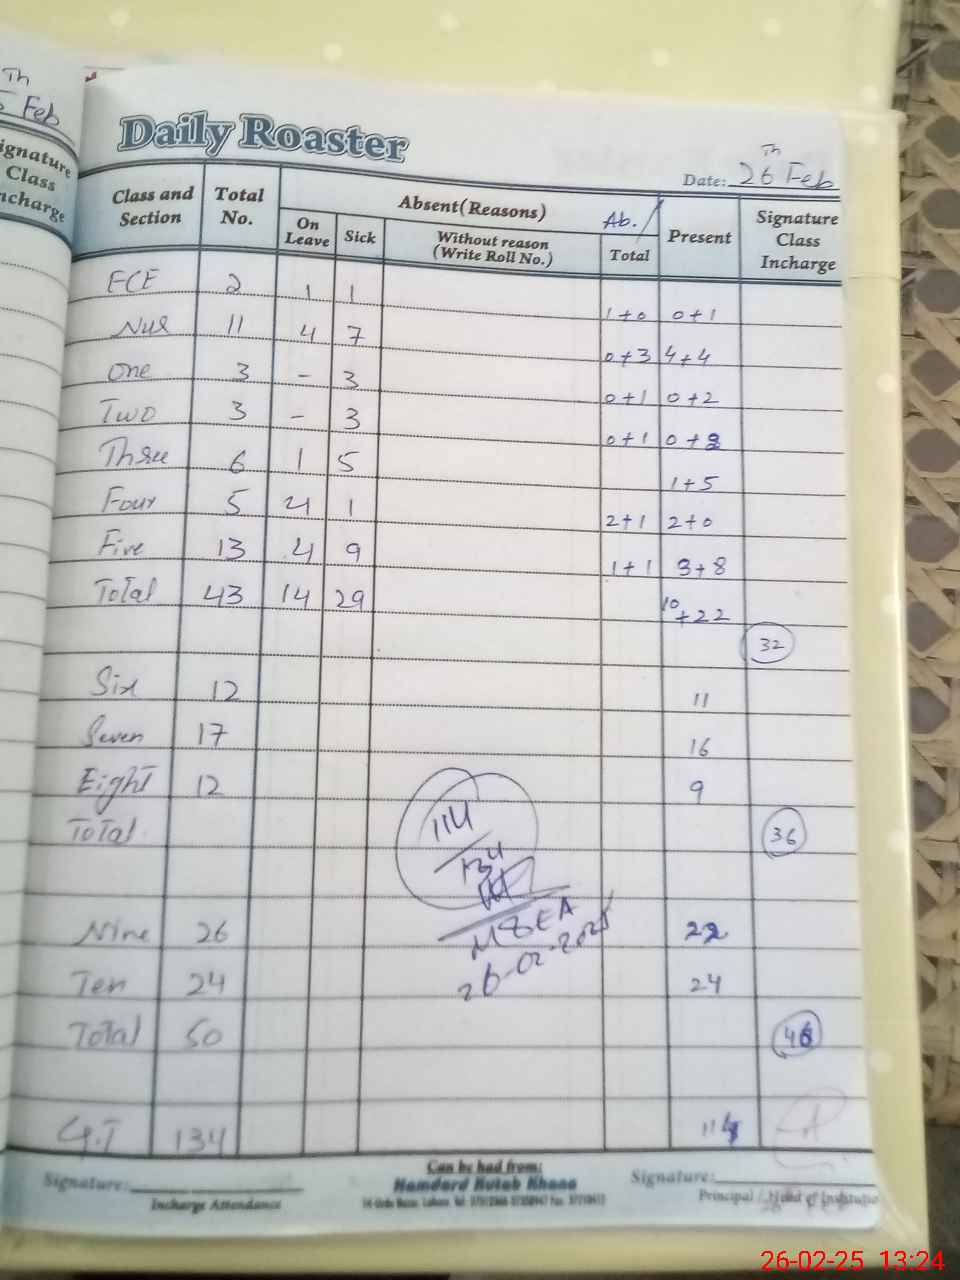 Th
Feb
Signature
Class
Incharge
Daily Roaster
Th
Date: 26 Feb
Class and Section Total No. Absent(Reasons) Ab./ Present Signature Class Incharge
On Leave Sick Without reason (Write Roll No.) Total
ECE 2 1 1 1+0 0+1
Nur 11 4 7 0+3 4+4
One 3 - 3 0+1 0+2
Two 3 - 3 0+1 0+2
Three 6 1 5 1+5
Four 5 4 1 2+1 2+0
Five 13 4 9 1+1 3+8
Total 43 14 29 10+22
32
Six 12 11
Seven 17 16
Eight 12 9
Total 36
114
134
MSEA
26-02-2025
Nine 26 22
Ten 24 24
Total 50 46
G.T 134 114
Signature: Can be had from: Signature:
Incharge Attendance Hamdard Kutab Khana Principal / Head of Institutio
26-02-25 13:24